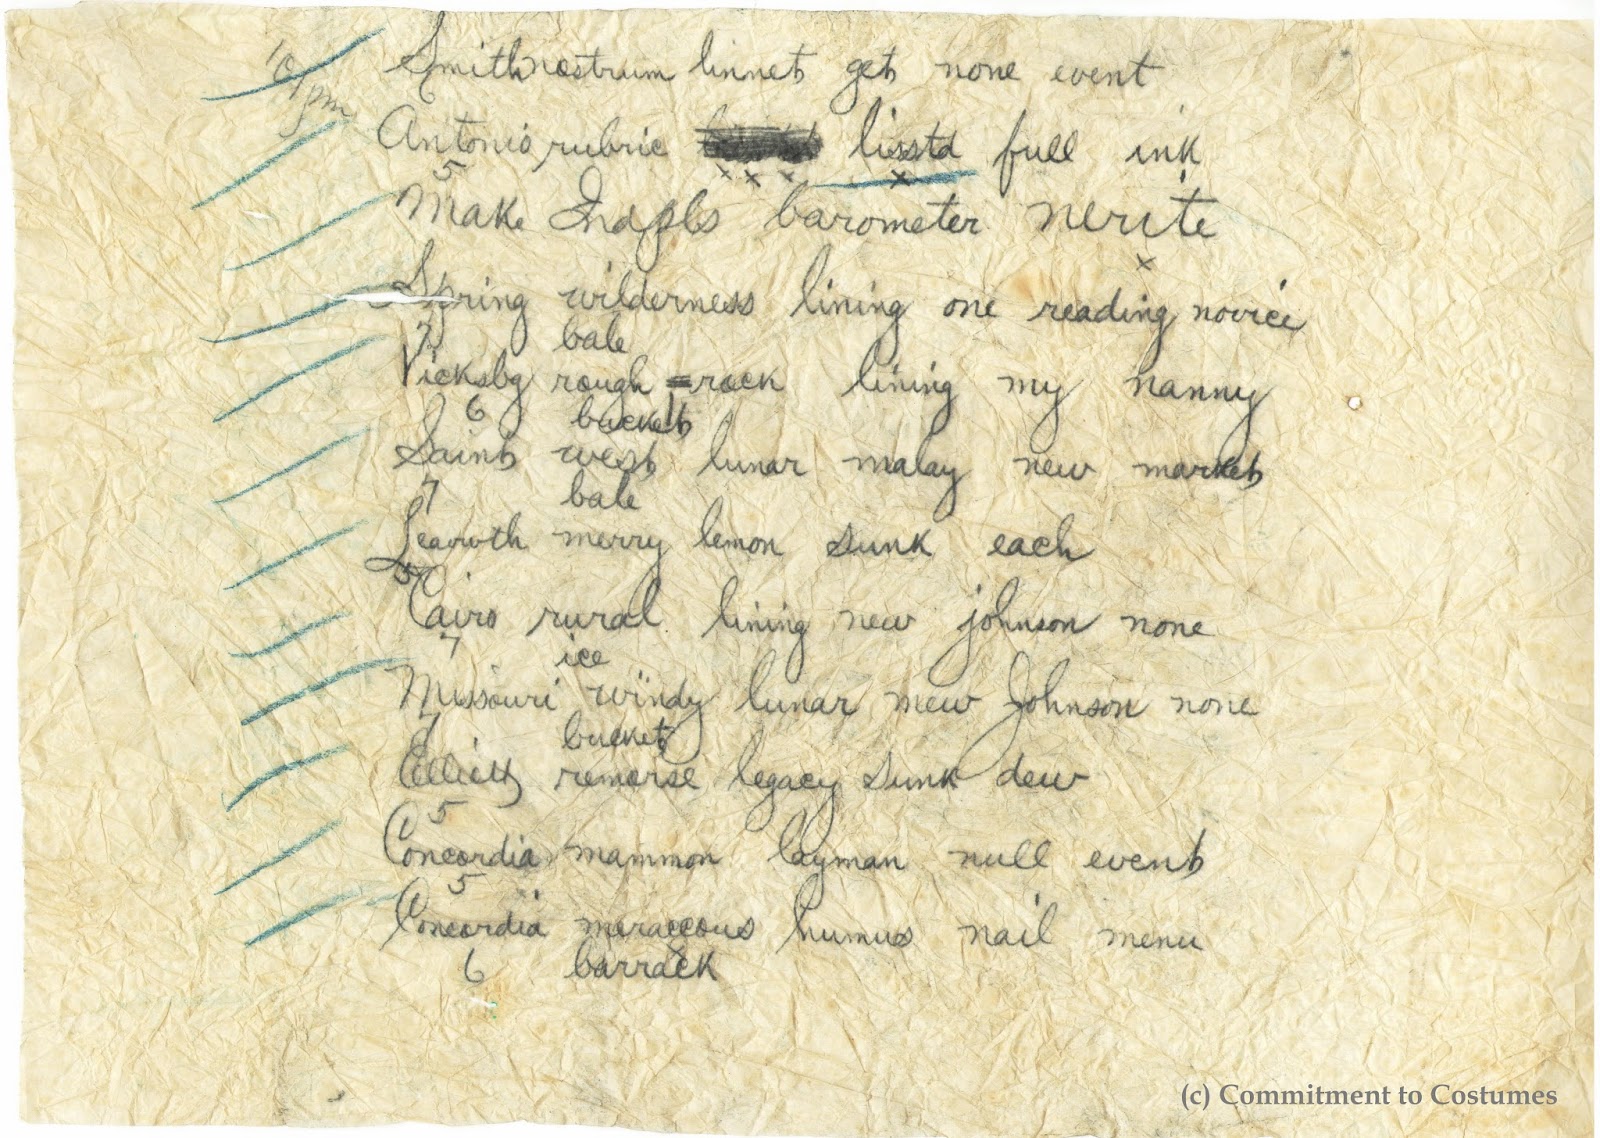 10pm
Smith nostrum linnet get none event
Antonio rubric lissta full ink
5
Make Indpls barometer nerite
Spring wilderness lining one reading novice
7 bale
Vicksbg rough rack lining my nanny
6 bucket
Saint west lunar malay new market
7 bale
Leavwth merry lemon sunk each
5
Cairo rural lining new johnson none
7 ice
Missouri windy lunar mew Johnson none
7 bucket
Elliott remorse legacy sunk dew
5
Concordia mammon layman null event
5
Concordia meraccous humus nail menu
6 barrack
(c) Commitment to Costumes